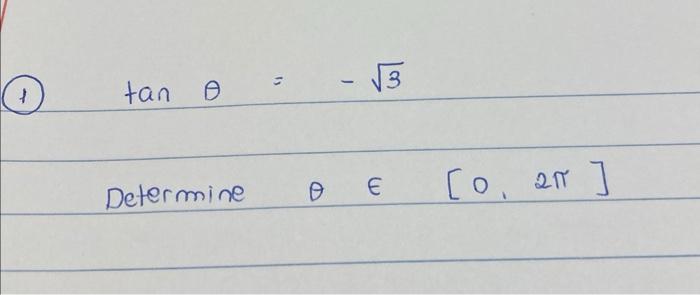 ① tan θ = - √3
Determine θ ∈ [0, 2π]